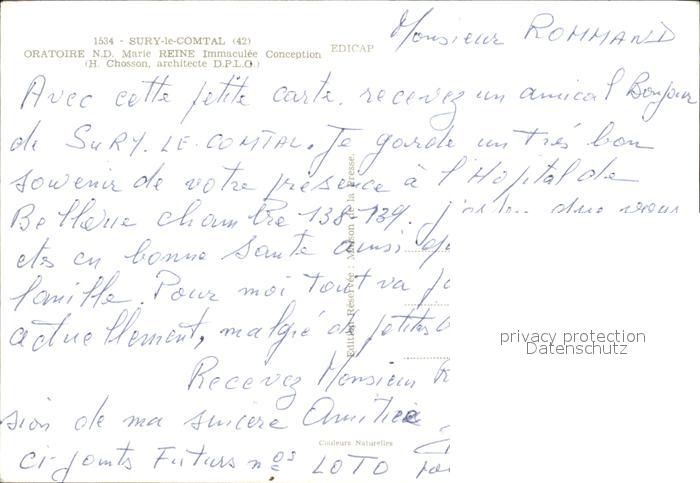 1534 - SURY-le-COMTAL (42)
ORATOIRE N.D. Marie REINE Immaculée Conception
(H. Chosson, architecte D.P.L.G.)
EDICAP
Monsieur ROMMAND
Avec cette petite carte. recevez un amical Bonjour
de SURY. LE. COMTAL. Je garde un très bon
souvenir de votre présence à l'Hôpital de
Bellevue chambre 138-139. que vous
etes en bonne Santé ainsi
famille. Pour moi tout va
actuellement, malgré de petites
Recevez Monsieur
sion de ma sincère Amitiée
ci-joints Futurs nos LOTO
Edition Réservée : Maison de la Presse.
Couleurs Naturelles
privacy protection
Datenschutz